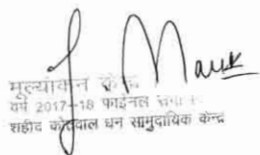 मूल्यांकन केन्द्र
वर्ष 2017-18 फाईनल
शहीद कोतवाल धन सामुदायिक केन्द्र